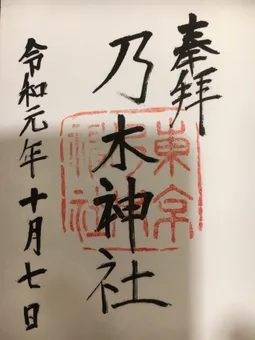 奉拝
乃木神社
令和元年十月七日
東京